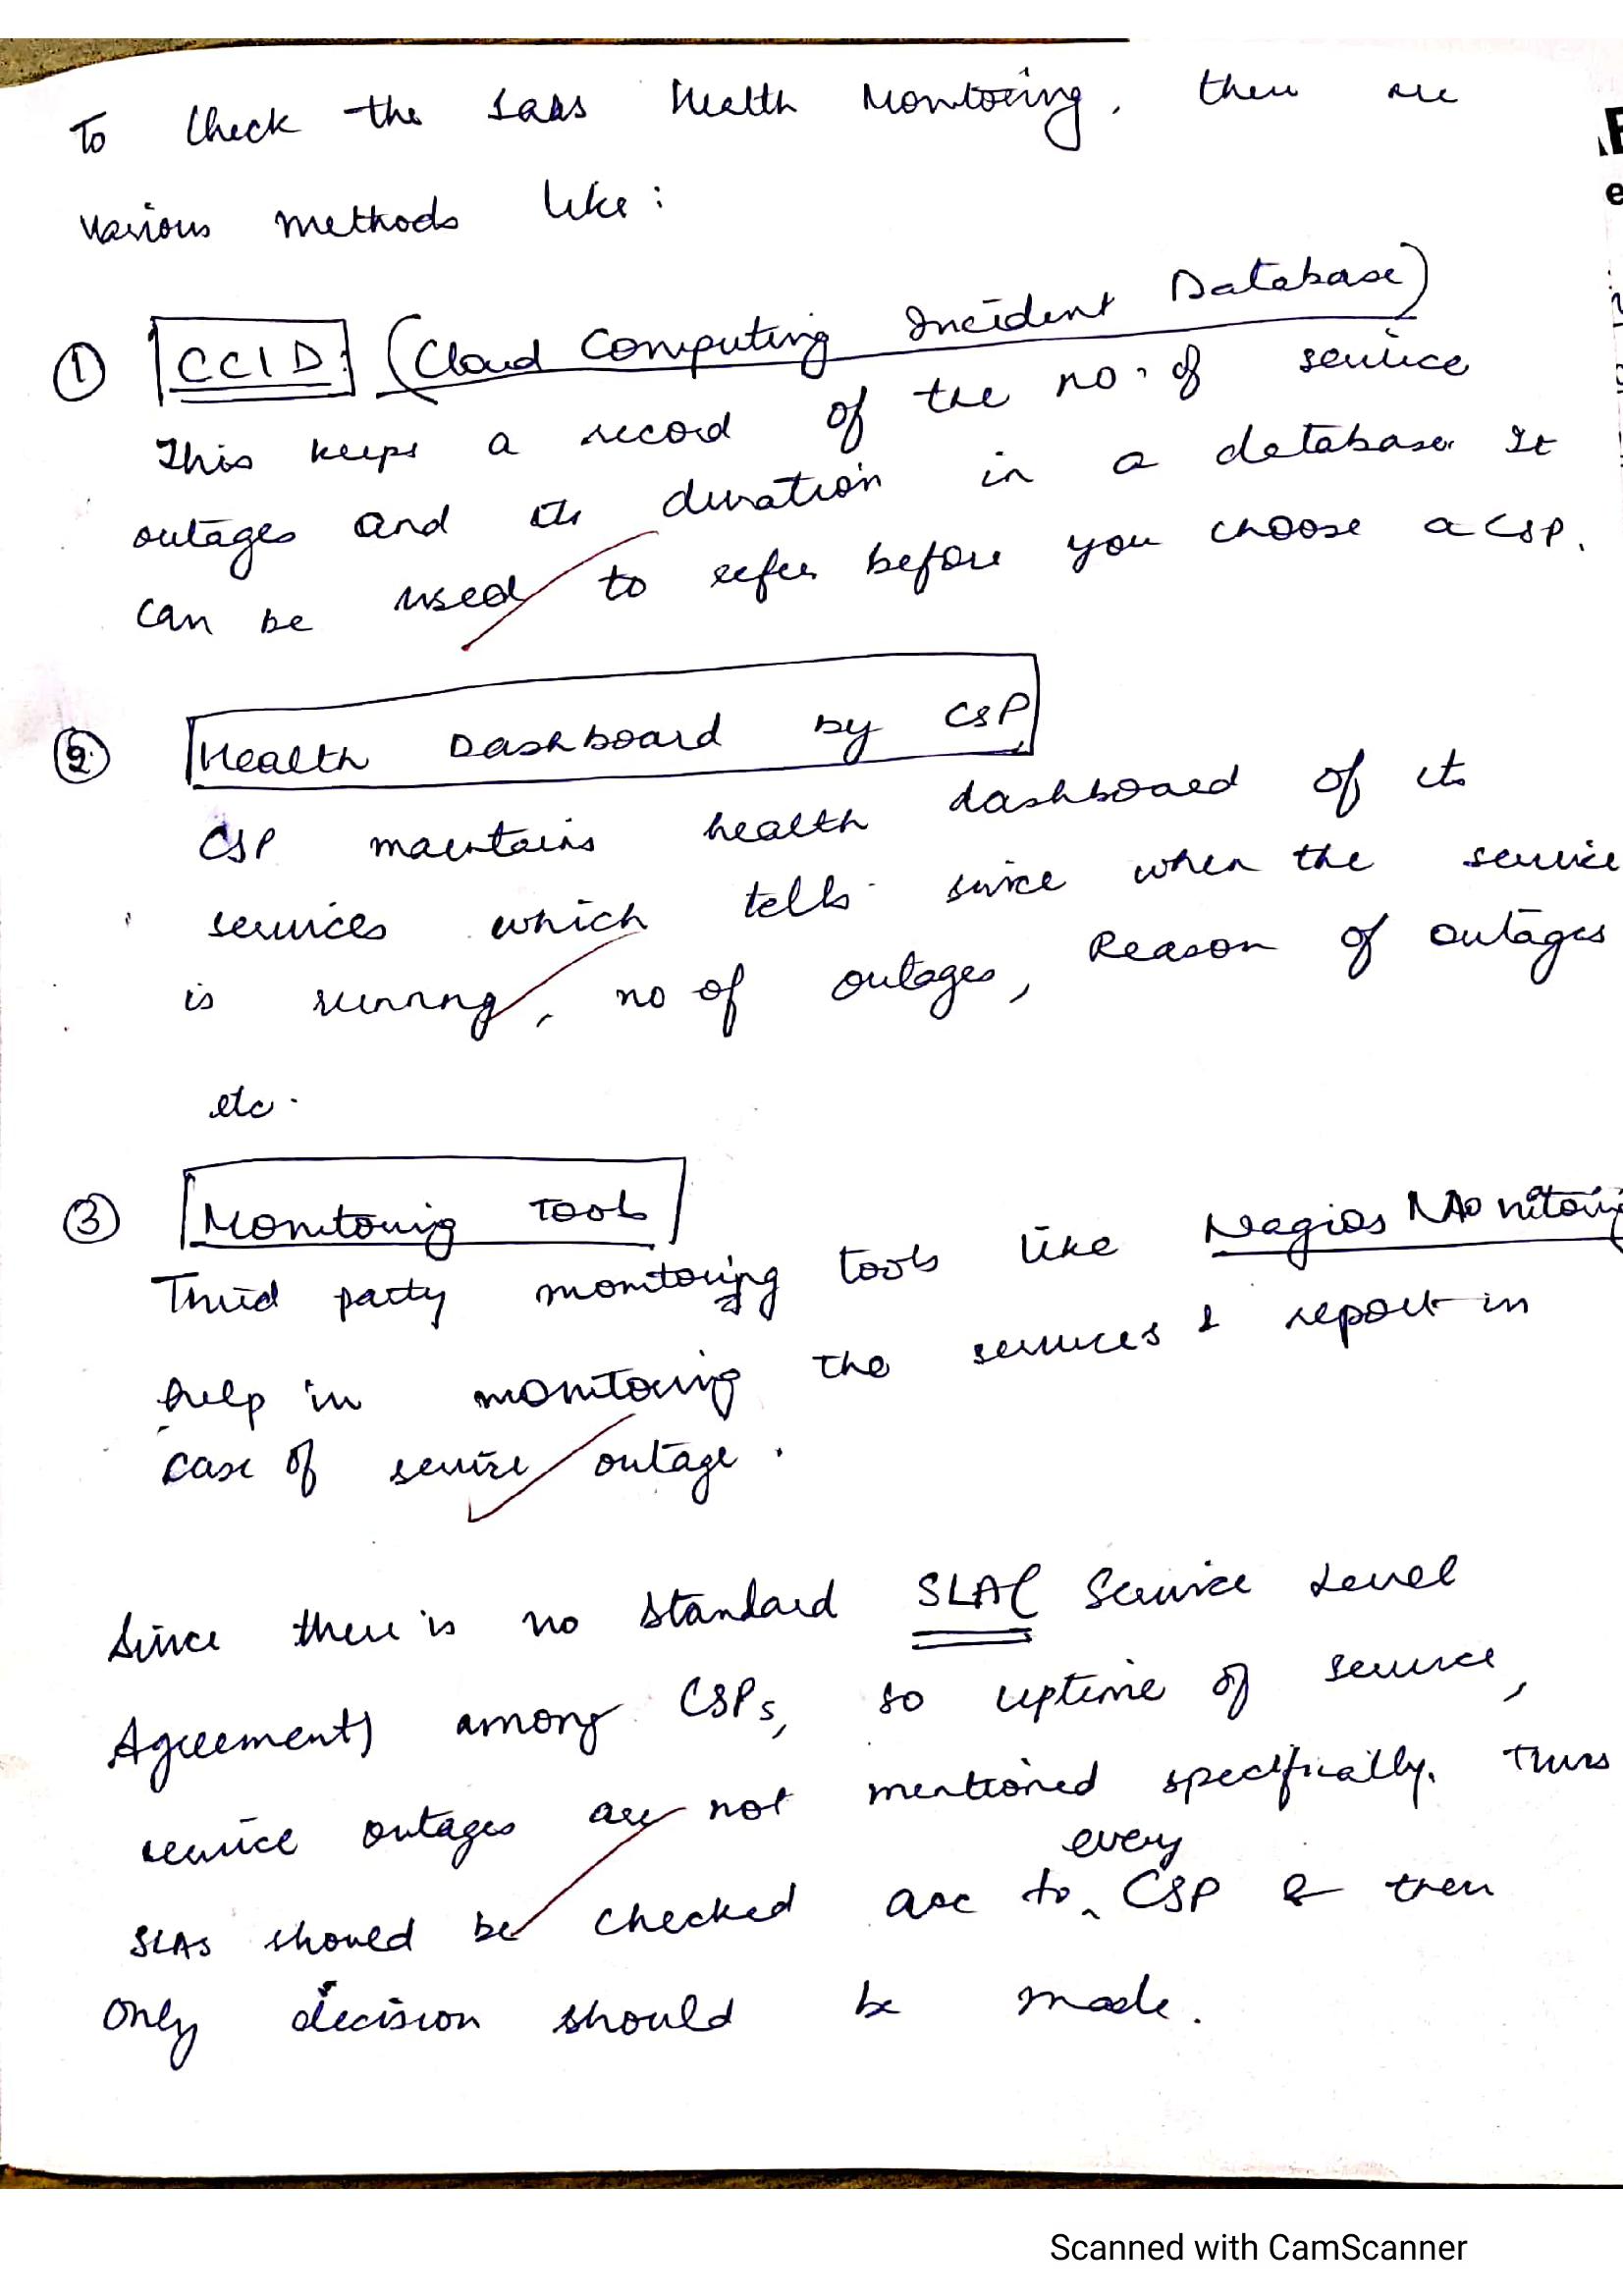 To Check the SaaS Health Monitoring, there are
various methods like:
① CCID (Cloud Computing Incident Database)
This keeps a record of the no. of service
outages and its duration in a database. It
can be used to refer before you choose a CSP.
② Health Dashboard by CSP
CSP maintains health dashboard of its
services which tells since when the service
is running, no of outages, Reason of outages
etc.
③ Monitoring Tools
Third party monitoring tools like Nagios Monitoring
help in monitoring the services & report in
case of service outage.
Since there is no standard SLA( Service Level
Agreement) among CSPs, so uptime of service,
service outages are not mentioned specifically. Thus
SLAs should be checked acc to every CSP & then
only decision should be made.
Scanned with CamScanner